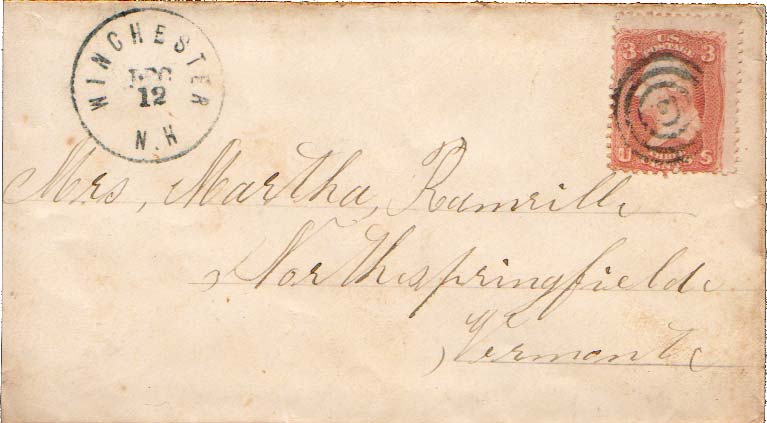 WINCHESTER
DEC
12
N.H
3 U.S. POSTAGE 3
U S
Mrs, Martha, Ramrill
Northspringfield
Vermont